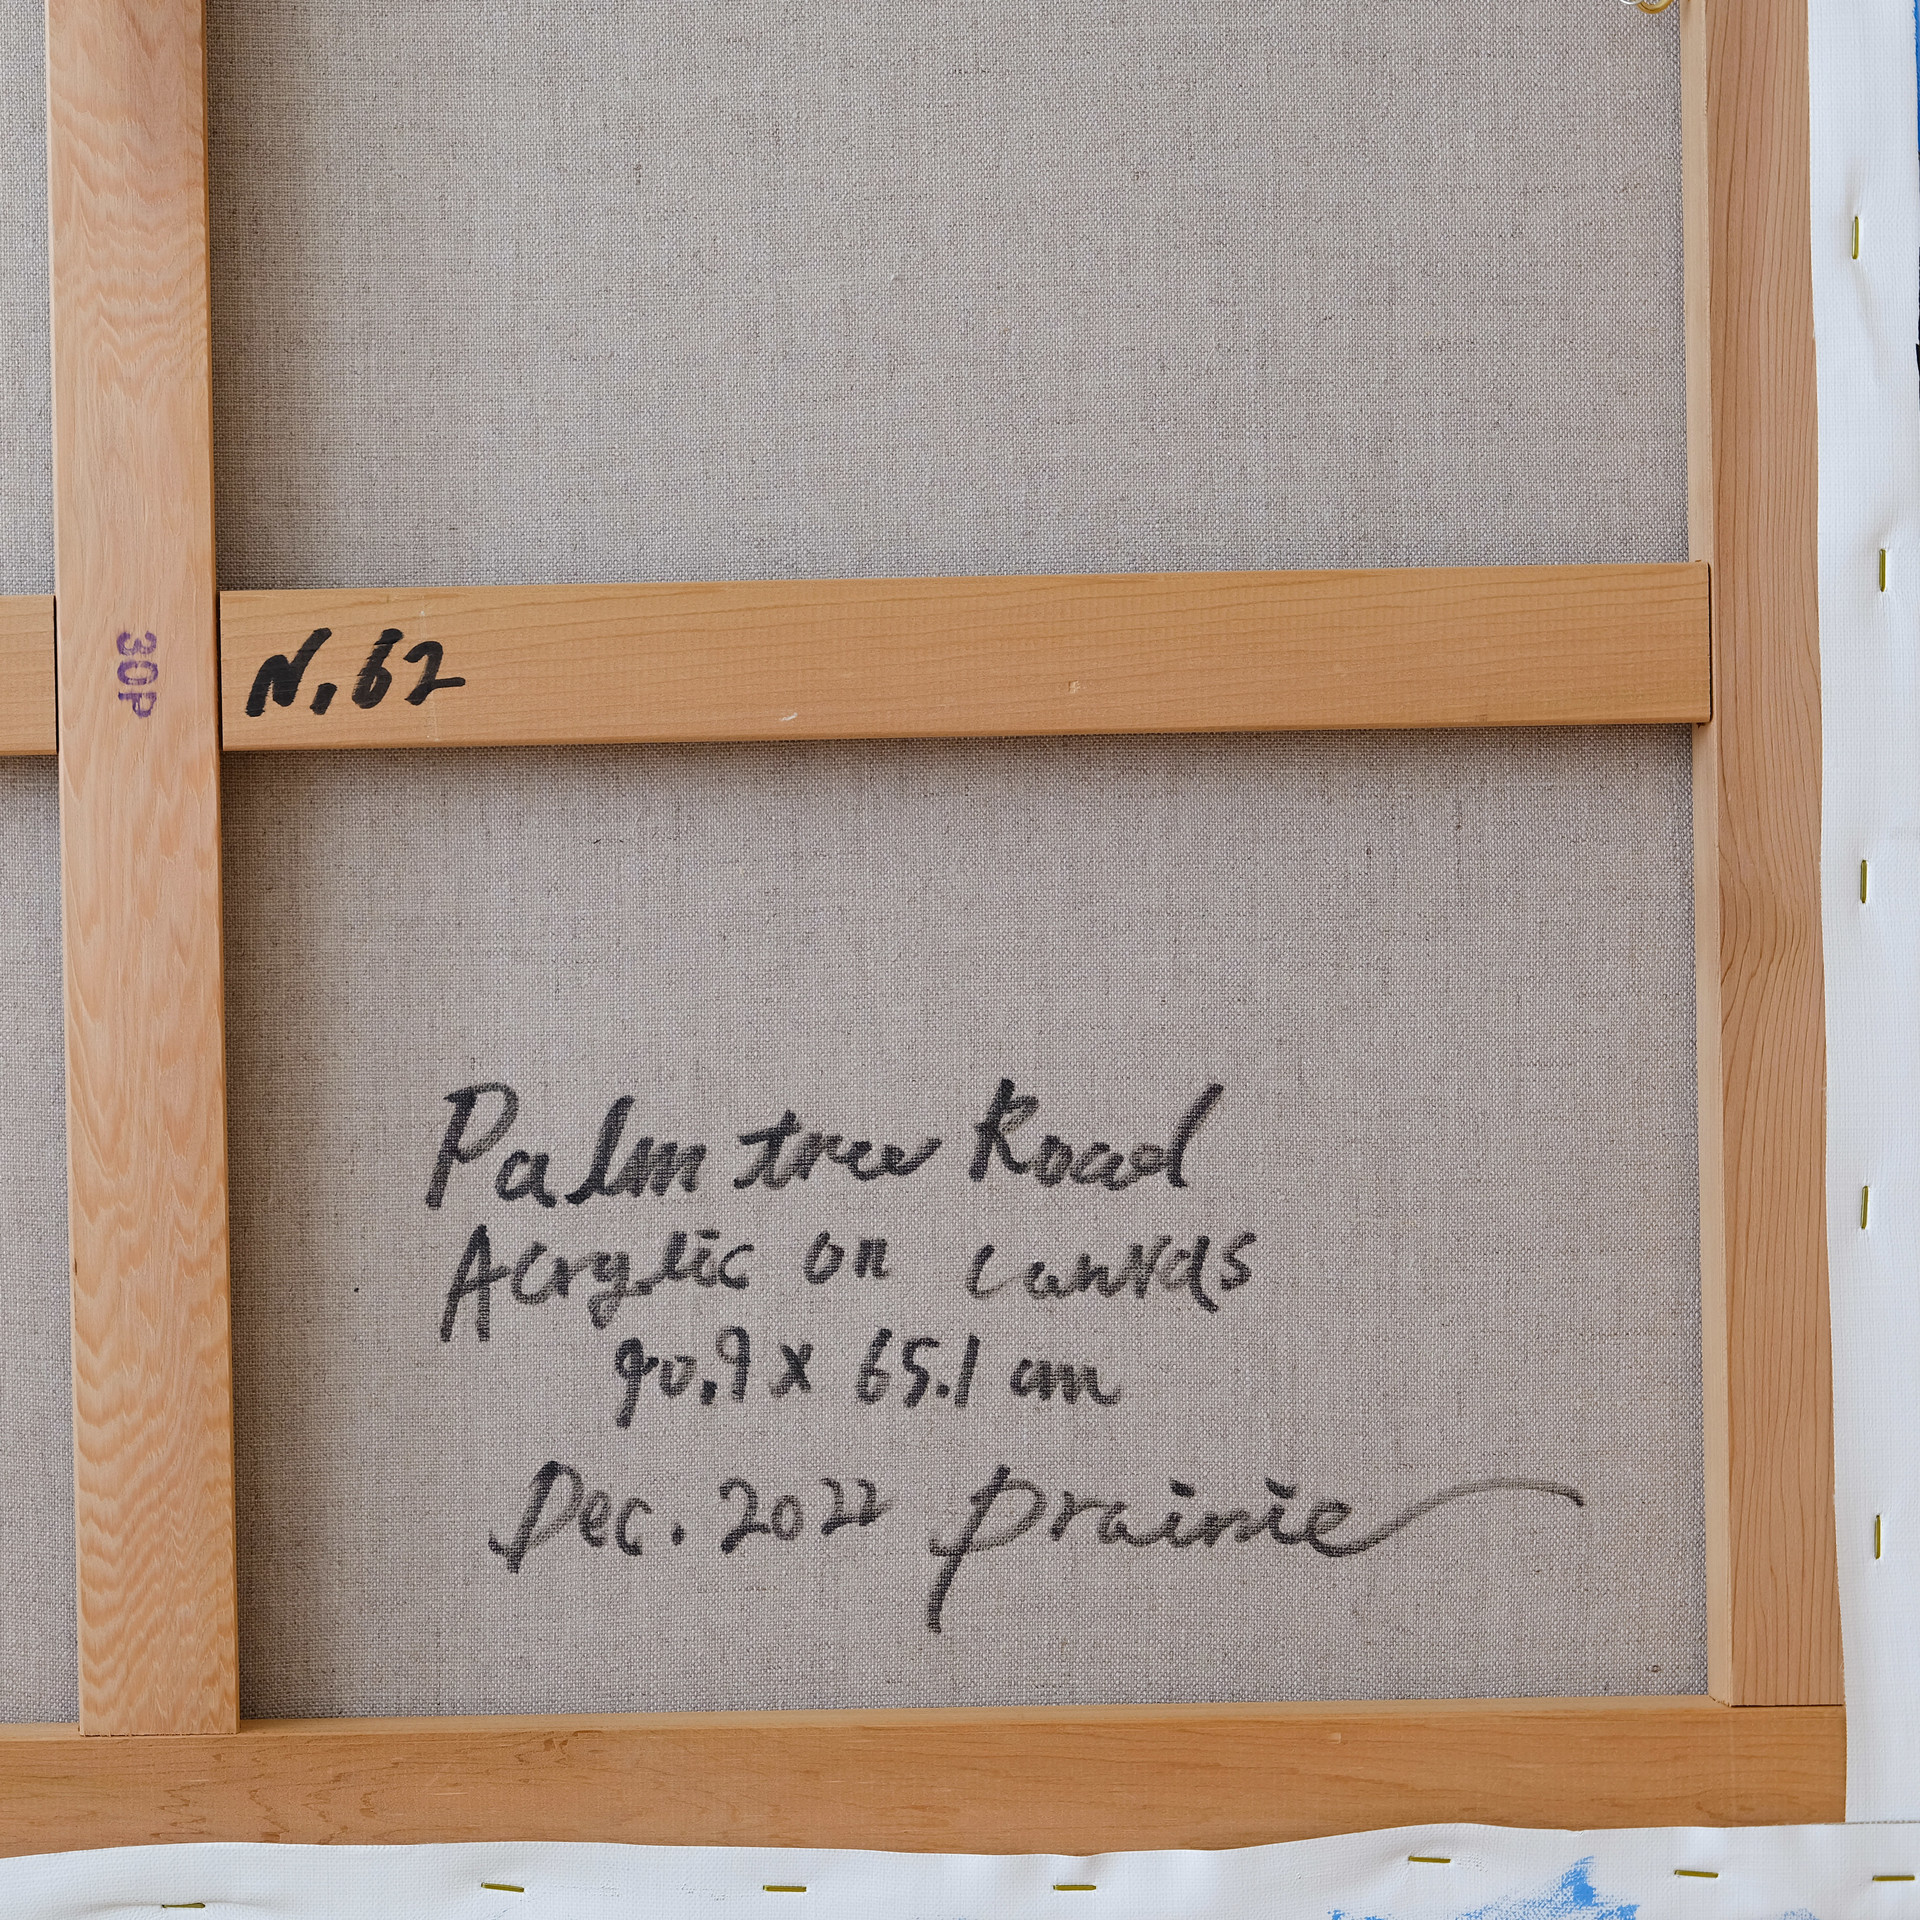 30P
N.62
Palm tree Road
Acrylic on canvas
90.9 x 65.1 cm
Dec. 2022 prairie